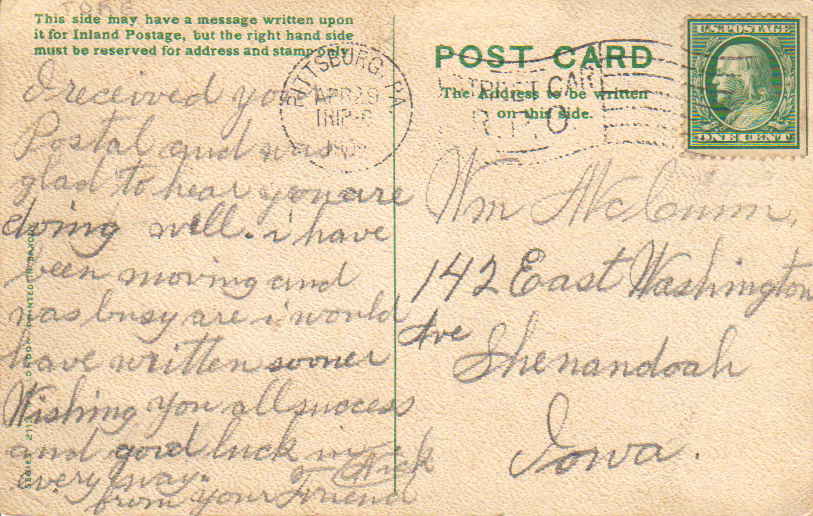 This side may have a message written upon
it for Inland Postage, but the right hand side
must be reserved for address and stamp only.
I received your
Postal and was
glad to hear you are
doing well. i have
been moving and
was busy are i would
have written sooner
Wishing you all success
and good luck in
every way.
from your Friend
Nick
POST CARD
The Address to be written
on this side.
PITTSBURG, PA.
APR 29
TRIP
STREET CAR
R.P.O
U.S. POSTAGE
ONE CENT
Wm
142 East Washington
Ave
Shenandoah
Iowa.